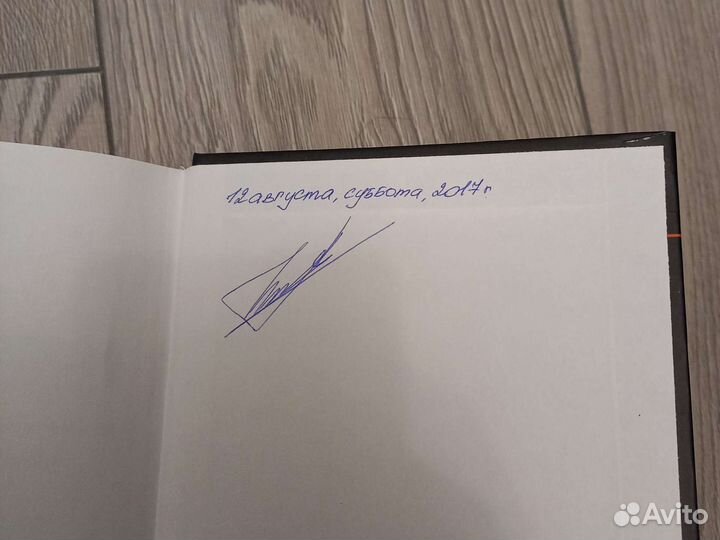 12 августа, суббота, 2017 г.
Avito